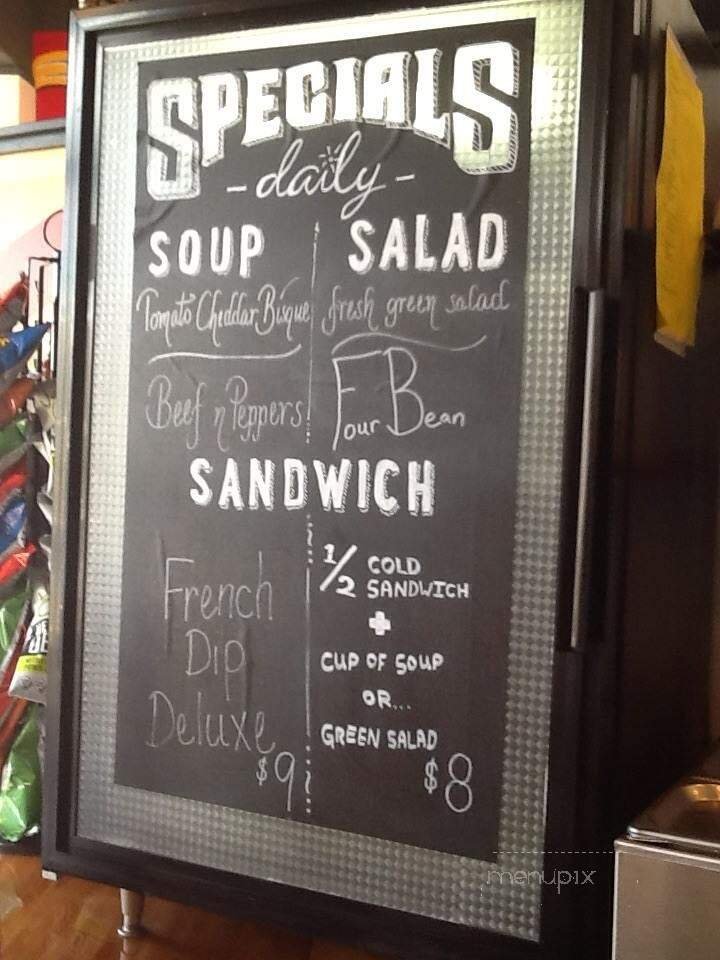 SPECIALS
- daily -
SOUP
Tomato Cheddar Bisque
Beef n Peppers
SALAD
fresh green salad
Four Bean
SANDWICH
French
Dip
Deluxe
$9
1/2 COLD
SANDWICH
+
CUP OF SOUP
OR...
GREEN SALAD
$8
menupix